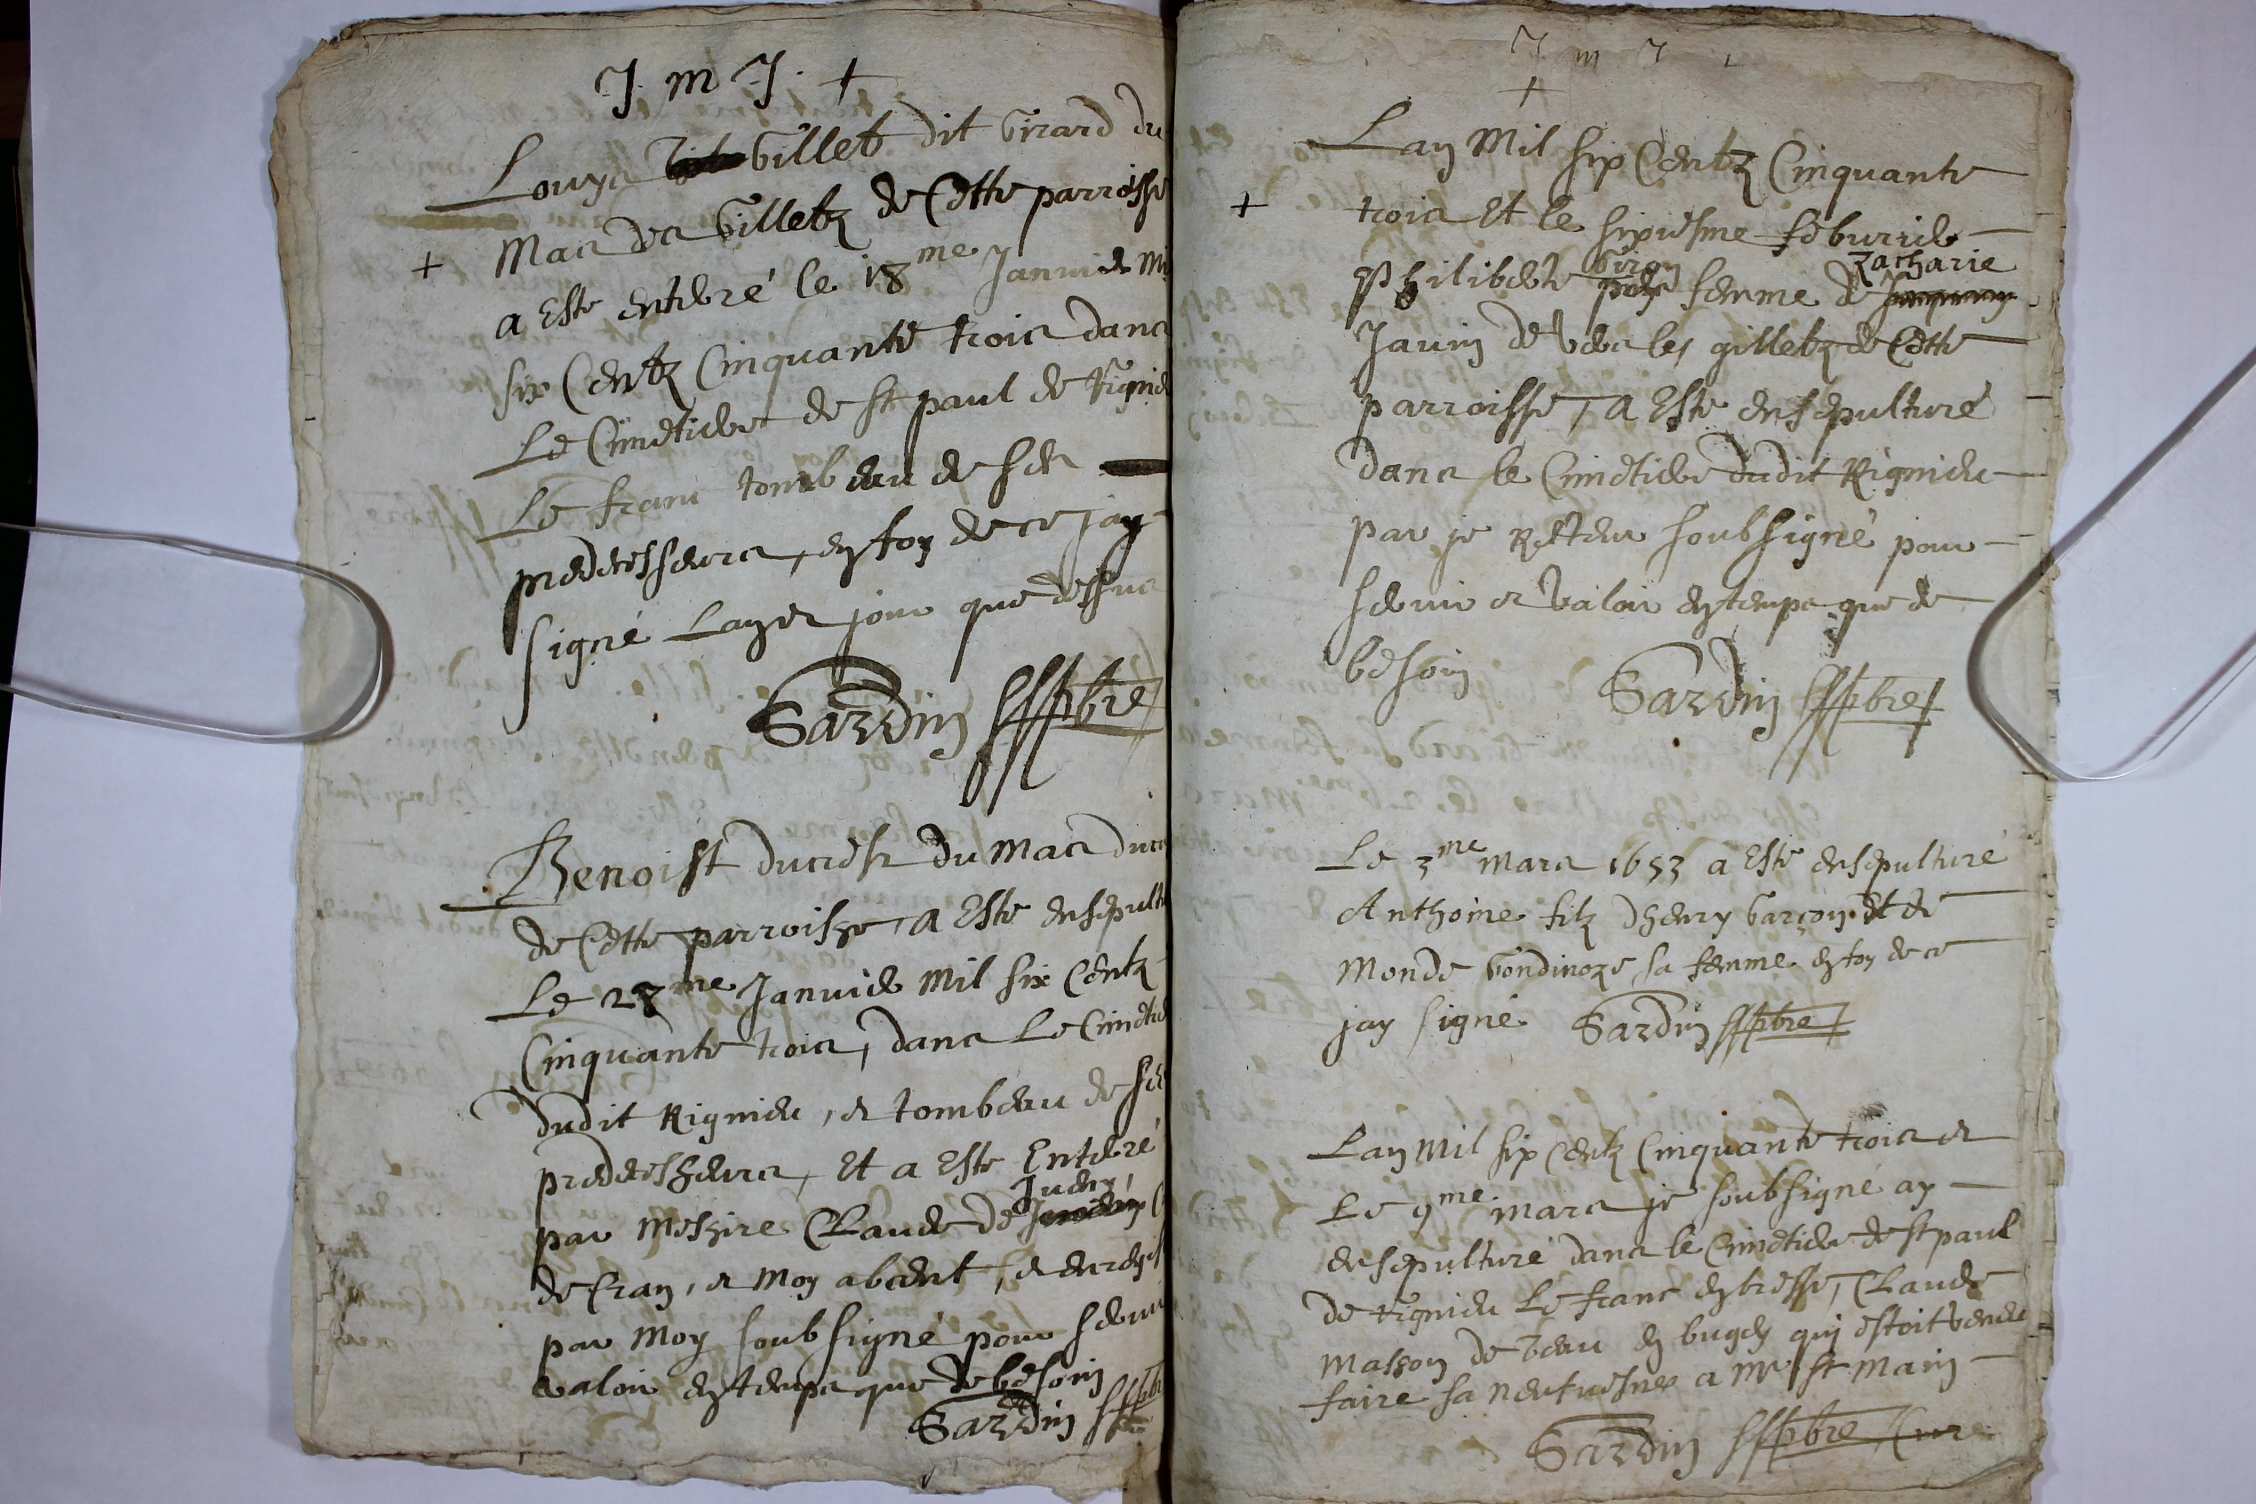 J. M J. +
Louys Gillet dit Girard du
+ Mas des Gilletz de Cette parroisse
a Este enterré le 18me Janvier Mil
six Centz Cinquante trois dans
Le Cimetiere de st paul de Rignieu
Le franc tombeau de ses
predecesseurs, en foy de ce jay
signé Lan et jour que dessus
Sardin pbre
Benoist ducrest du Mas ducrest
de Cette parroisse, a Este ensepulturé
Le 27me Janvier Mil six Centz
Cinquante trois, dans Le Cimetiere
dudit Rignieu, et tombeau de ses
predecesseurs, Et a Este Enterré
par Messire Claude de Jueny
de Cran, et Moy absent,
par Moy soubsigné pour servir
valoir en temps que de besoin
Sardin pbre
J m J
+
Lan Mil six Centz Cinquante
+ trois Et le sixiesme feburier
Zacharie
Philiberte femme de
Javin de vers les gilletz de Cette
parroisse, a Este ensepulturé
dans le Cimetiere dudit Rignieu
par je Recteur soubsigné pour
servir et valoir en temps que de
besoin Sardin pbre
Le 3me Mars 1653 a Este ensepulturé
Anthoine filz dhenry Garçon et de
Monde sa femme en foy de ce
jay signé Sardin pbre
Lan Mil six Centz Cinquante trois et
Le 9me mars je soubsigné ay
ensepulturé dans le Cimetiere de st paul
de Rignieu Le franc en bresse, Claude
Masson de en bugey qui estoit venu
faire sa neufvesne a Mr st Main
Sardin pbre Cure